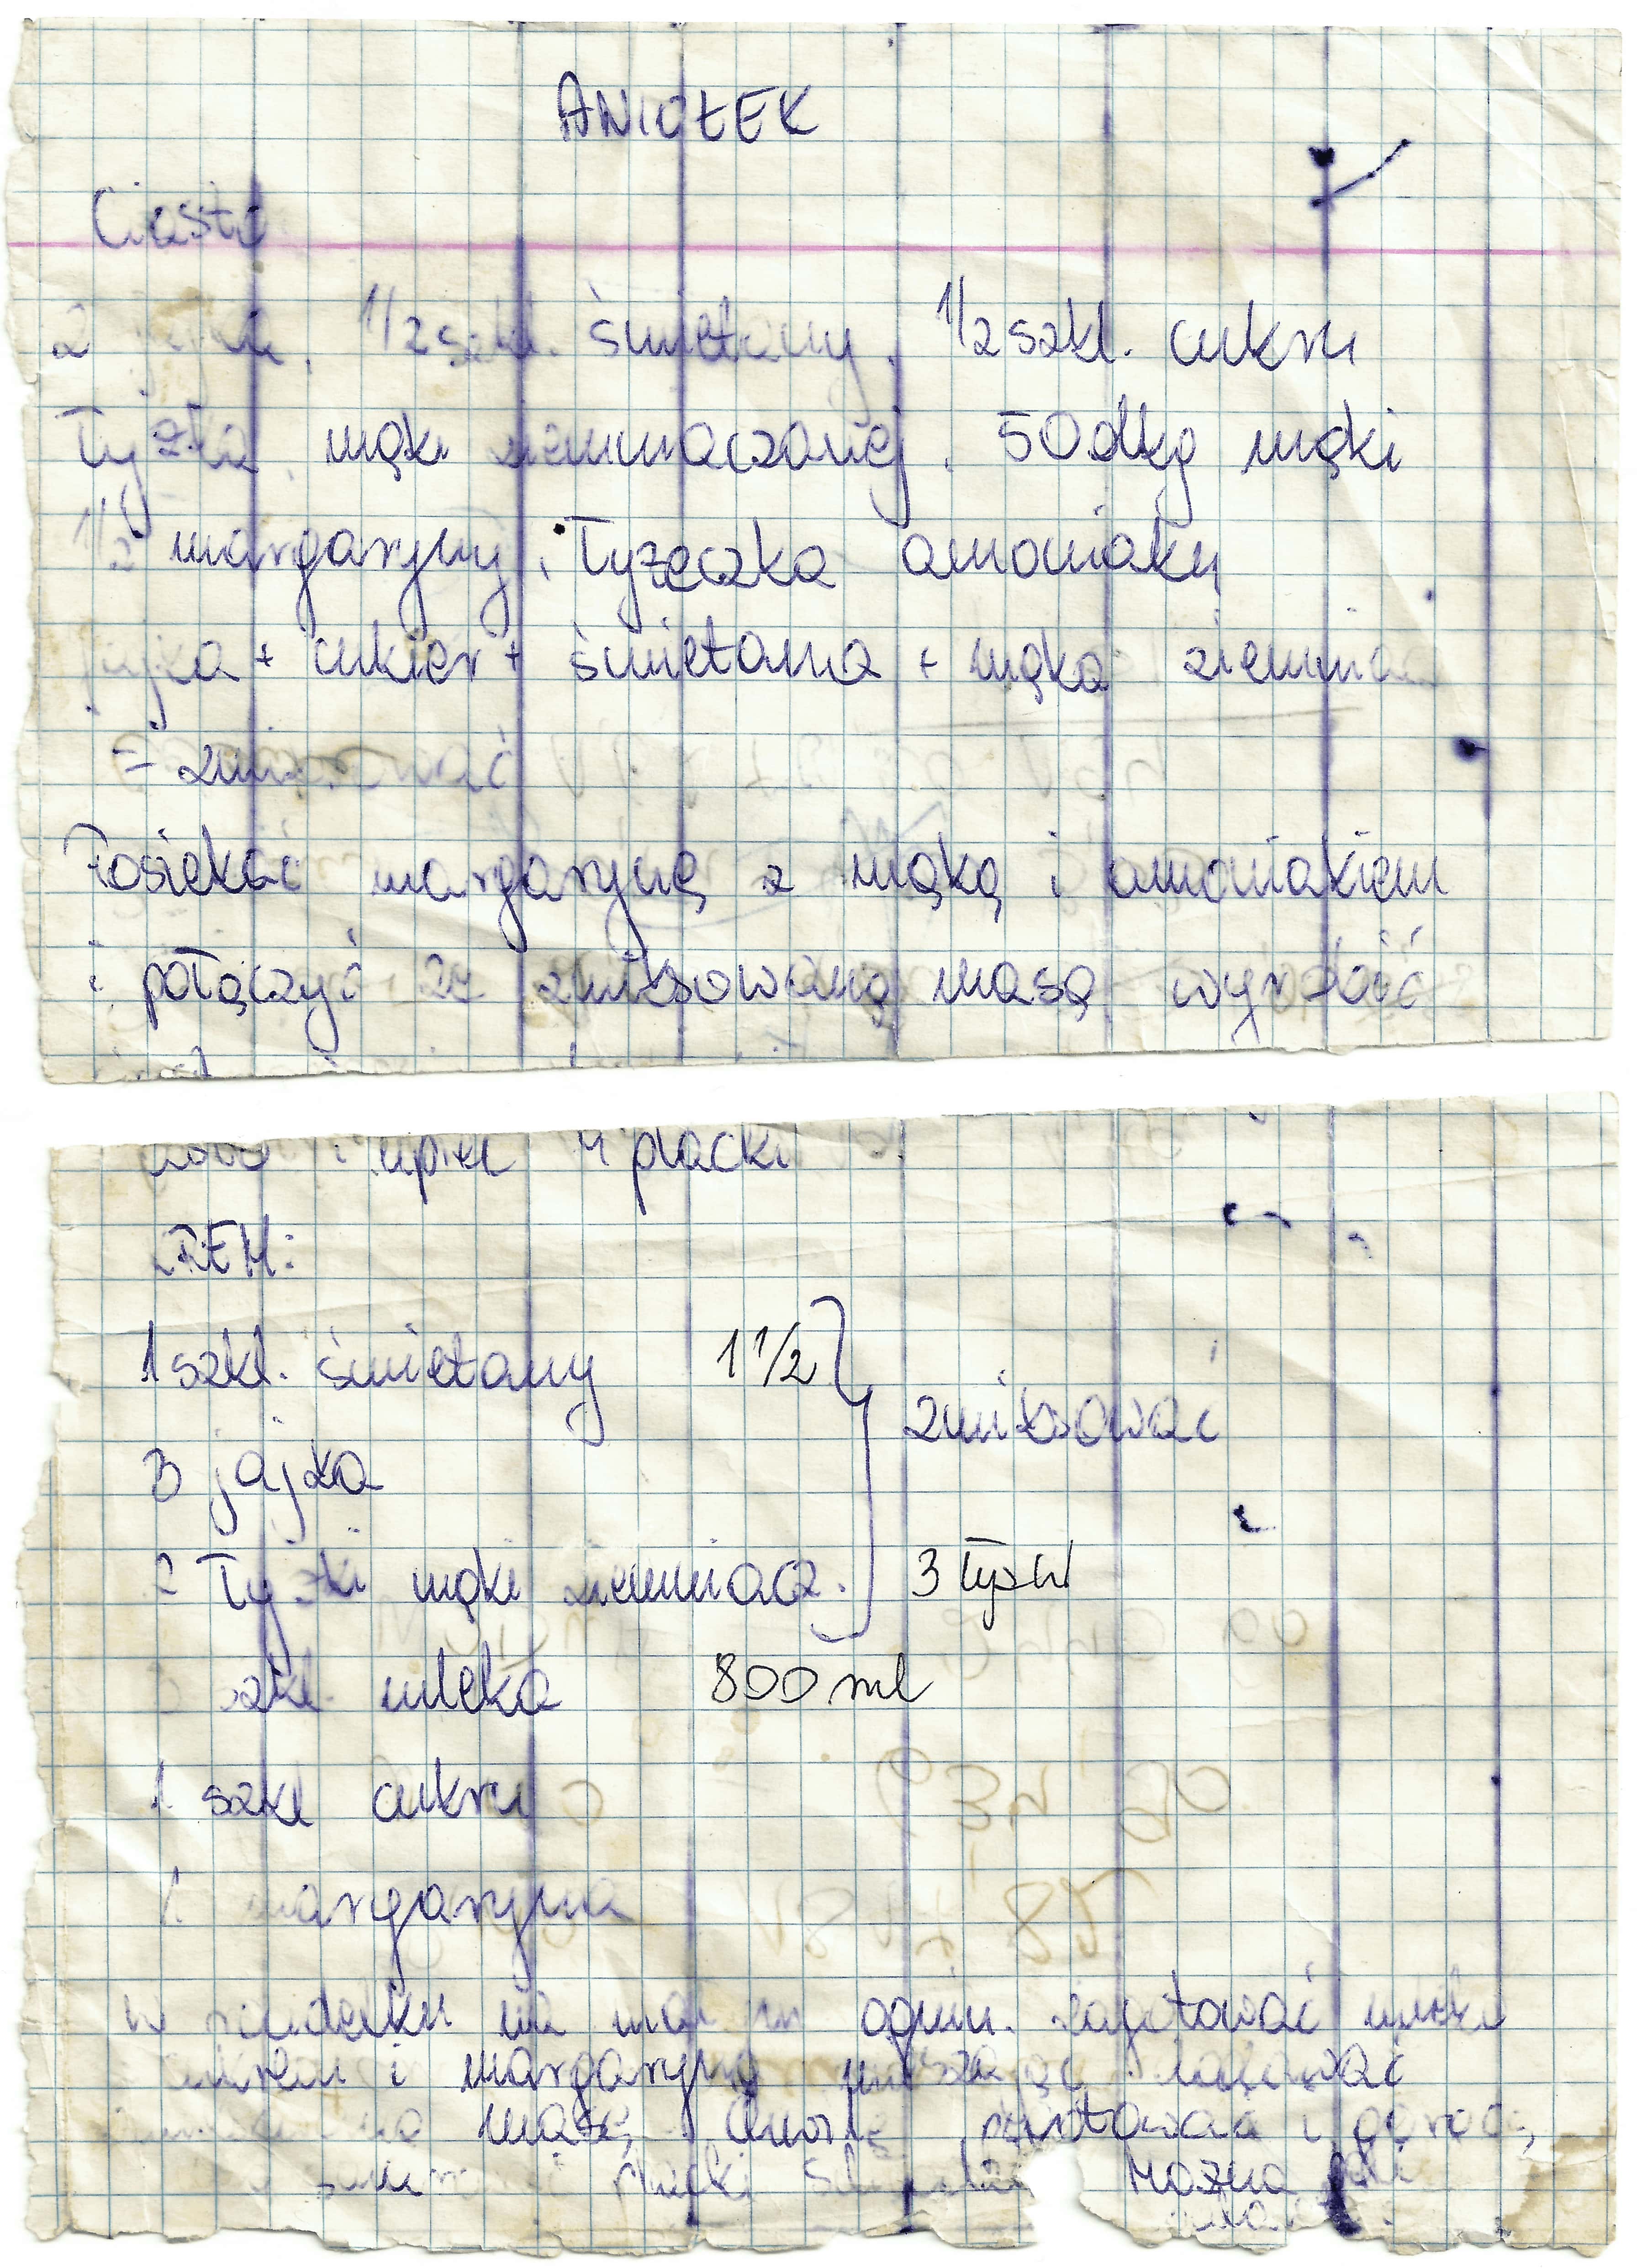 ANIOŁEK
Ciasto
2 jajka, 1/2 szkl. śmietany, 1/2 szkl. cukru
Łyżka mąki ziemniaczanej, 50 dkg mąki
1/2 margaryny, Łyżeczka amoniaku
jajka + cukier + śmietana + mąka ziemniacz
= zmiksować
Posiekać margarynę z mąką i amoniakiem
i połączyć ze zmiksowaną masą wyrobić
i upiec 4 placki
KREM:
1 szkl. śmietany 1 1/2
3 jajka zmiksować
2 Łyżki mąki ziemniacz. 3 łyżki
szkl. mleka 800 ml
1 szkl cukru
1 margaryna
w rondelku na małym ogniu zagotować mleko
cukrem i margaryną mieszając
masę, chwilę i
placki Można